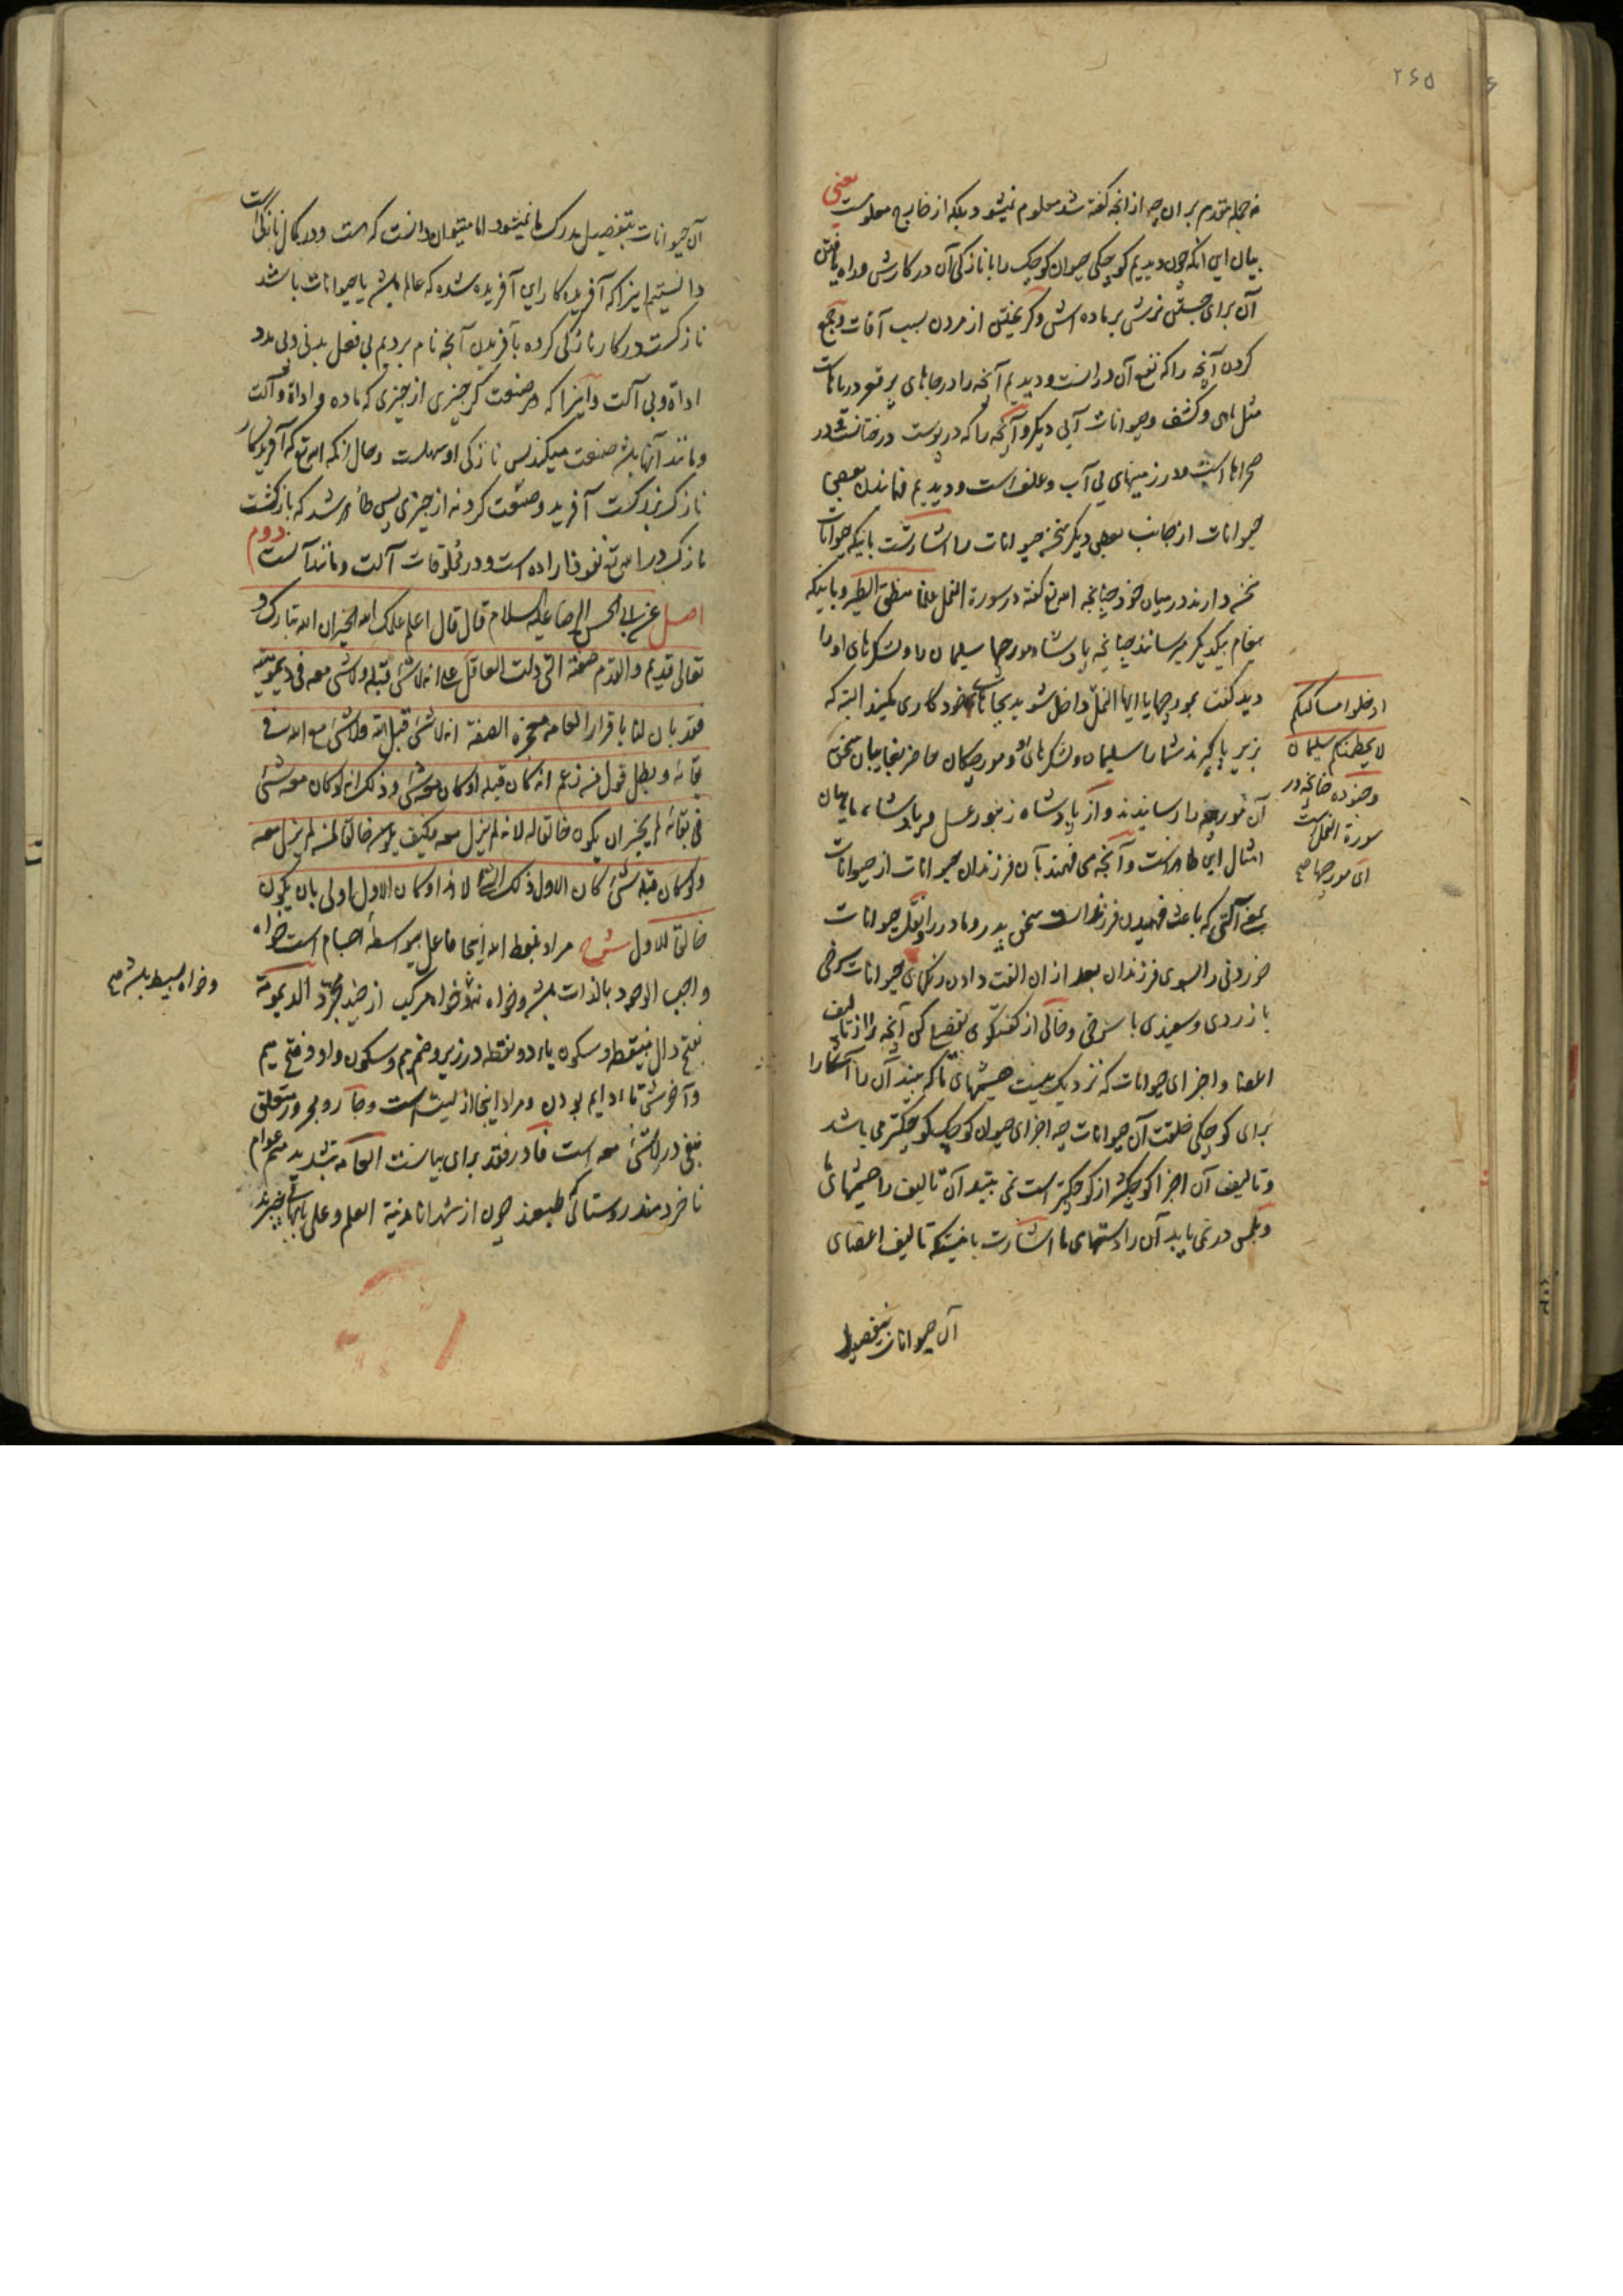 ۲۶۵
نه جمله مقدم بر ان چه از انچه گفته شد معلوم نمیشود بلکه از خارج معلومست یعنی
بیان این انکه چون دیدیم کوچکی حیوان کوچک را با نازکی آن در کارش و راه یافتن
آن برای جستن نرش بر ماده اش و گریختن از مردن بسبب آفات و جمع
کردن آنچه را که نفع آن در انست و دیدیم آنچه را در جاهای پر قعر دریاهاست
مثل ماهی و کشف و حیوانات آبی دیگر و آنچه را که در پوست درختانست و در
صحراها است و در زمینهای بی آب و علف است و دیدیم فهمانیدن بعضی
حیوانات از جانب بعضی دیگر سخن حیوانات را اشارتست باینکه حیوانات
سخن دارند در میان خود چنانچه الله تع گفته در سورة النمل علمنا منطق الطیر و باینکه
پیغام بیکدیگر میرسانند چنانچه پادشاه مورچها سلیمان را و لشکرهای او را
دید گفت بمورچها یا ایها النمل داخل شوید بجاهای خود کاری مکنید البته که
بزیر پا گیرند شما را سلیمان و لشکرهای او و مورچکان حاضر بغایبان سخن
آن مورچه را رسانیدند و از پادشاه زنبور عسل و پادشاه ماهیان
امثال این ظاهر است و آنچه می فهمند بآن فرزندان حیوانات از حیوانات
یعنی آلتی که باعث فهمیدن فرزندانست سخن پدر و مادر را و نقل حیوانات
خوردنی را بسوی فرزندان بعد از ان الفت دادن رنگهای حیوانات سرخی
با زردی و سفیدی با سرخی و خالی از گفتگوی تفصیل کن آنچه را از تالیف
اعضا و اجزای حیوانات که نزدیک نیست چشمهای ما که بیند آن را آشکارا
برای کوچکی خلقت آن حیوانات چه اجزای حیوان کوچک کوچکتر می باشد
و تالیف آن اجزا کوچکتر از کوچکتر است نمی بیند آن تالیف را چشمهای ما
و بلمس در نمی یابد آن را دستهای ما اشارت باینست که تالیف اعضای
آن حیوانات بتفصیل
ادخلوا مساکنکم
لا یحطمنکم سلیمان
و جنوده چنانچه در
سورة النملست
ای مورچها صح
آن حیوانات بتفصیل مدرک ما نمیشود اما میتوان دانست که هست و در کمال نازکی است
دانستیم اینرا که آفریدکار این آفریده شده که عالم باشد یا حیوانات باشد
نازکست در کار نازکی کرده بآفریدن آنچه نام بردیم بی فعل بدنی و بی مدد
اداة و بی آلت و آنرا که هر صنعت گر چیزی از چیزی که ماده و اداة و آلت
و مانند آنها باشد صنعت میکند پس نازکی او سهلست و حال آنکه الله تع که آفریدکار
نازک بزرگست آفرید و صنعت کرد نه از چیزی پس ظاهر شد که بازگشت
نازک در الله تع نفوذ اراده است و در مخلوقات آلت و مانند آنست دوم
اصل عن ابی الحسن الرضا علیه السلام قال قال اعلم علمک الله الخیر ان الله تبارک و
تعالی قدیم و القدم صفته التی دلت العاقل علی انه لا شی قبله و لا شی معه فی دیمومیته
فقد بان لنا باقرار العامة معجزة الصفة انه لا شئ قبل الله و لا شئ مع الله فی
بقائه و بطل قول من زعم انه کان قبله او کان معه شی و ذلک انه لو کان معه شئ
فی بقائه لم یجز ان یکون خالقا له لانه لم یزل معه فکیف یکون خالقا لمن لم یزل معه
و لو کان قبله شئ کان الاول ذلک الشئ لا هذا و کان الاول اولی بان یکون
خالقا للاول شرح مراد بلفظ الله اینجا فاعل بیواسطهٔ اجسام است خواه
واجب الوجود بالذات باشد و خواه نباشد و خواه مرکب از چند مجرد الدیمومة
بفتح دال بینقطه و سکون یاء دو نقطه در زیر و ضم میم و سکون واو و فتح میم
و آخرش تاء دایم بودن و مراد اینجا ازلیت است و جار و مجرور متعلق
بنفی در لا شئ معه است فا در فقد برای بیانست العامة بتشدید میم عوام
ناخردمند روستائی طبعند چون از شهر انا مدینة العلم و علی بابها بیخبرند
و خواه بسیط باشد صح